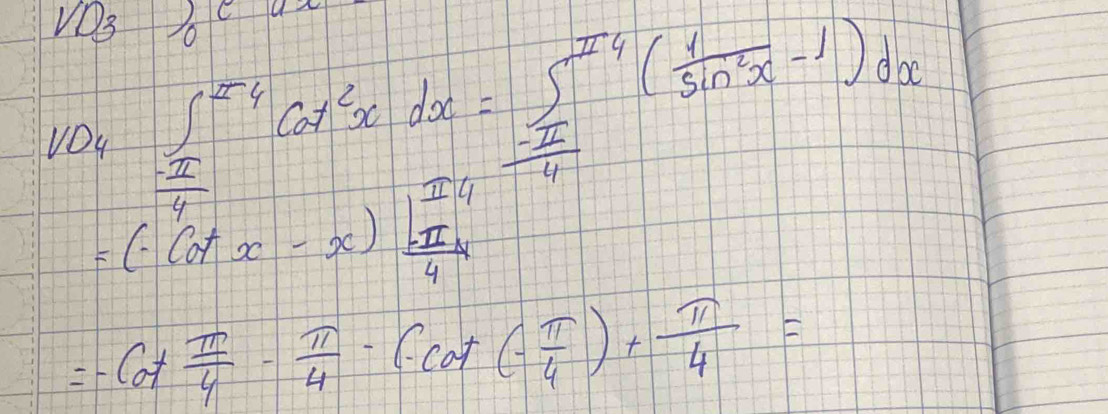 VD3 ∫₀ e dx
VD4 ∫_{-π/4}^{π4} Cot²x dx = ∫_{-π/4}^{π4} (1/sin²x - 1) dx
= (- Cot x - x) |_{-π/4}^{π4}
= - Cot π/4 - π/4 - (-cot (-π/4) + π/4 =